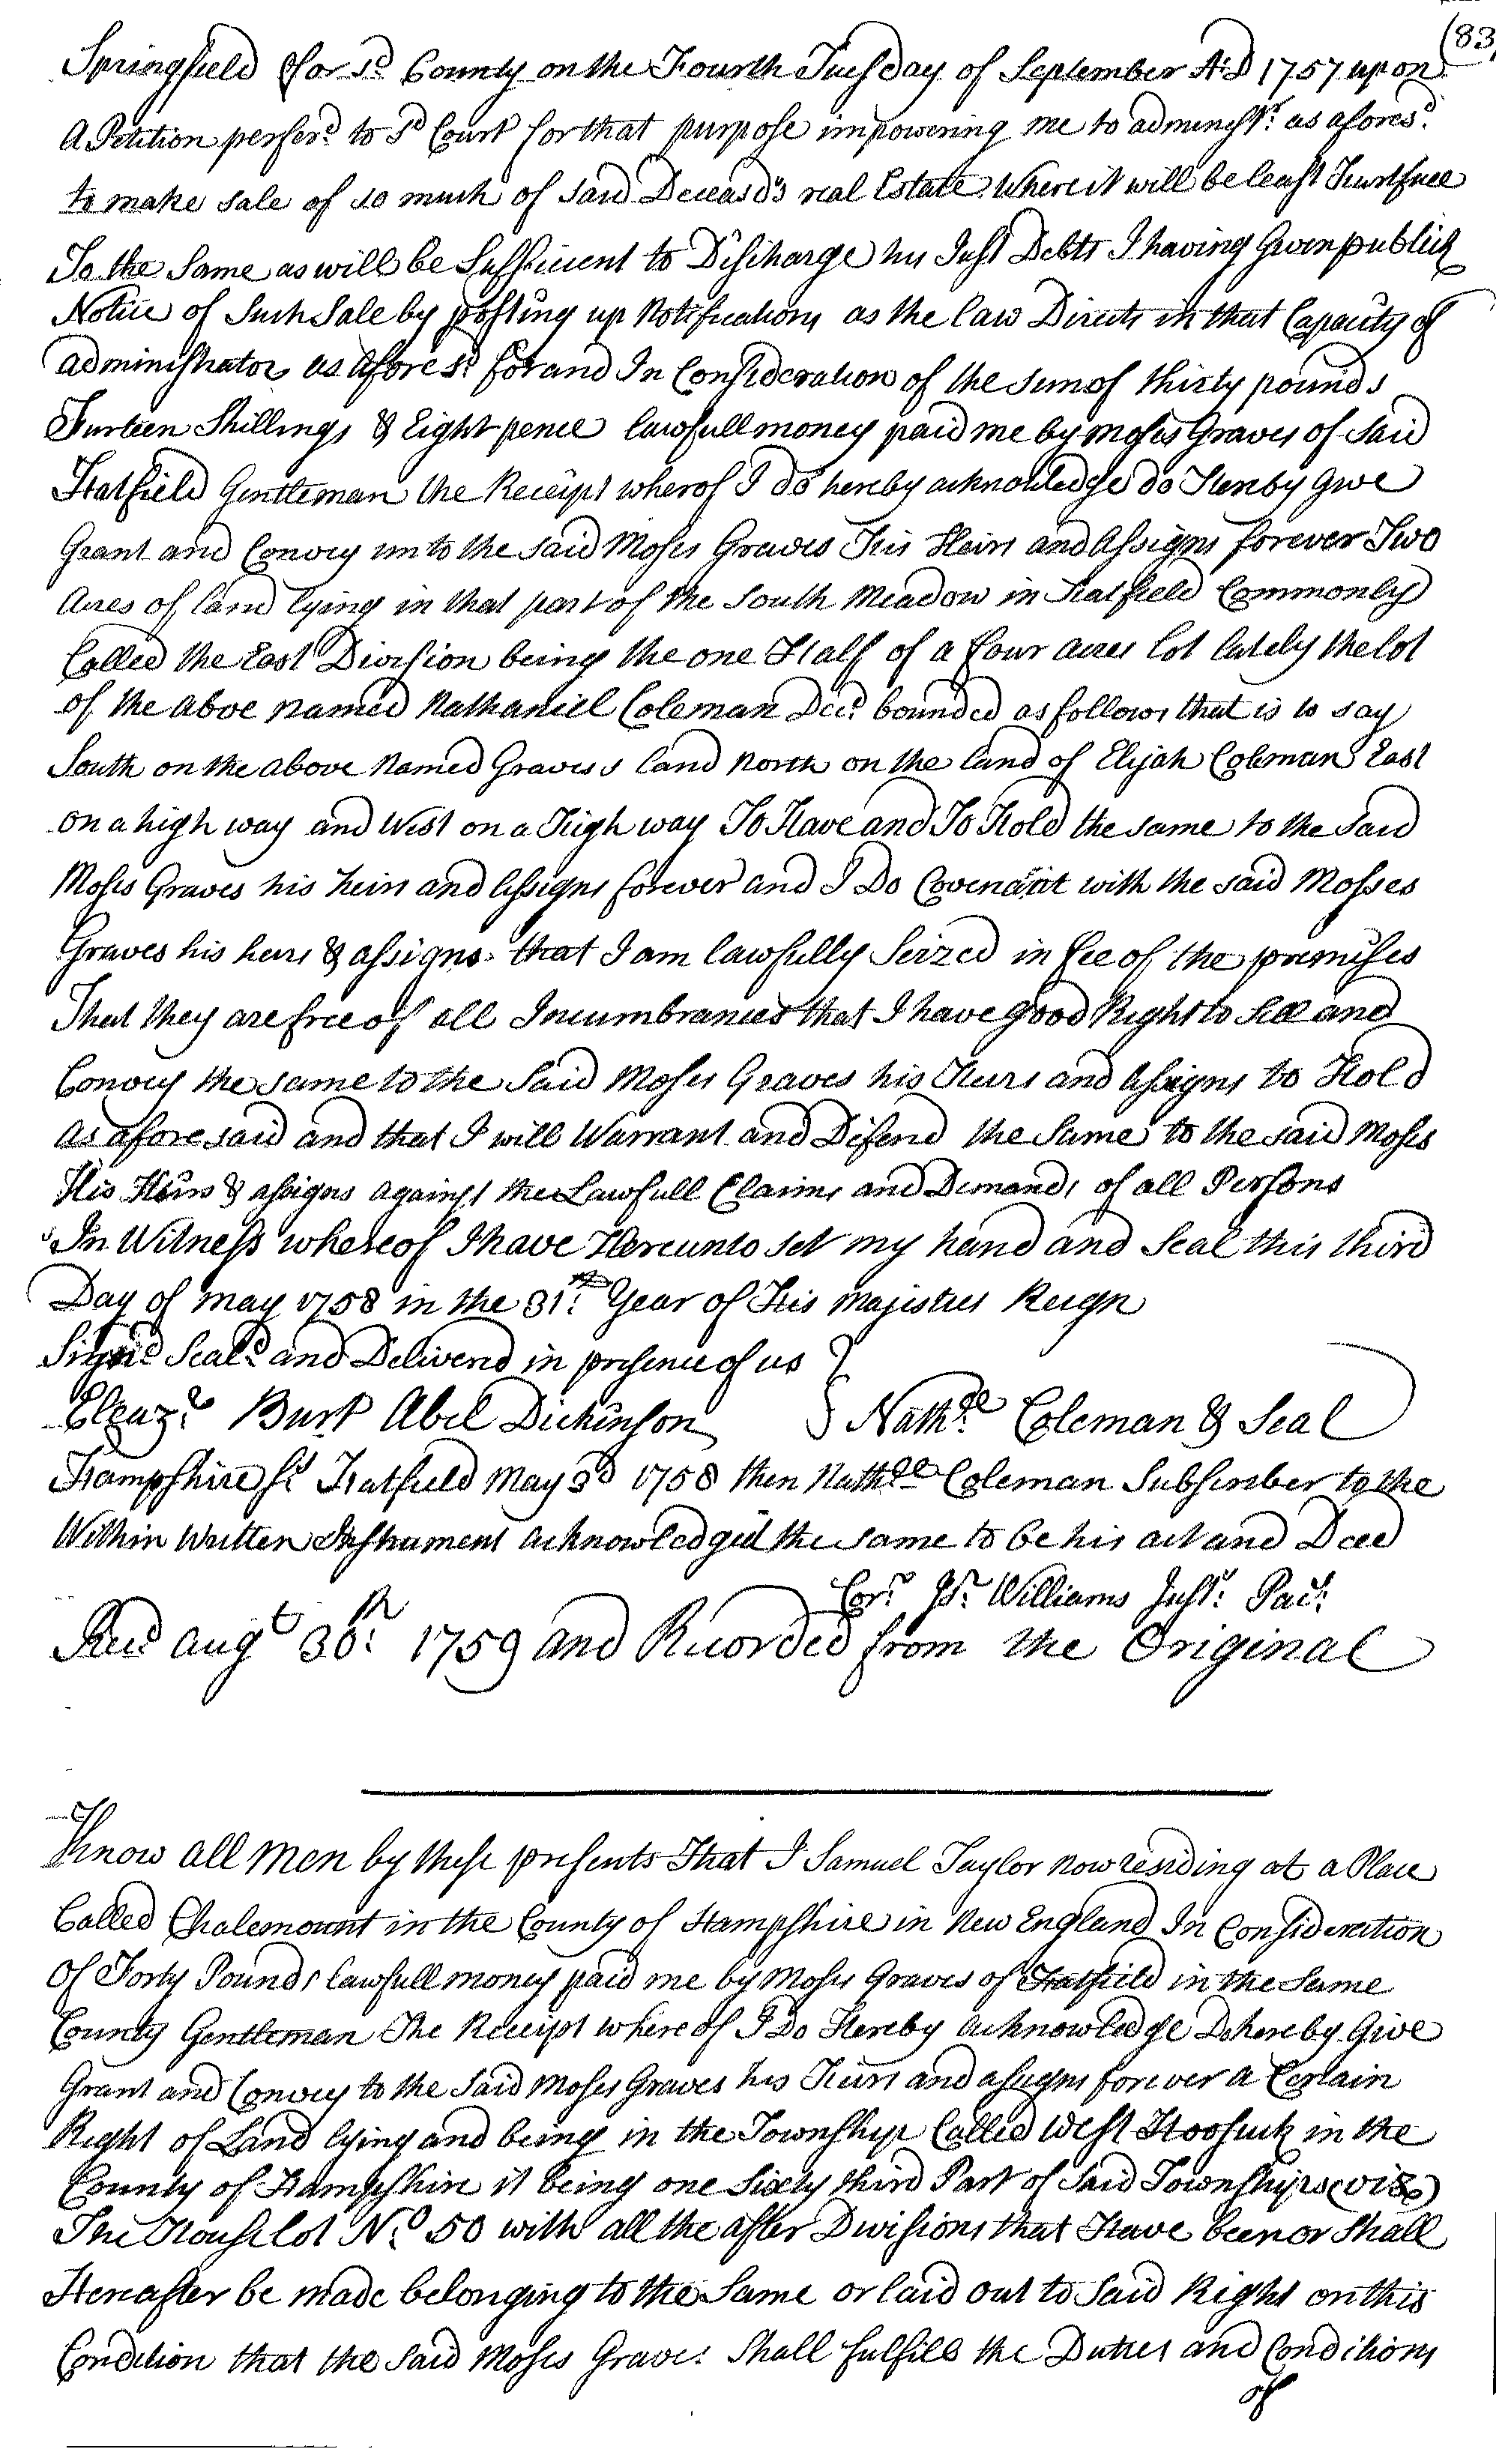 (83)
Springfield for sd County on the Fourth Tuesday of September A:D 1757 upon
A Petition perferd to sd Court for that purpose impowering me to administr: as aforesd:
to make sale of so much of said Deceasd's real Estate Where it will be least Hurtfull
To the Same as will be Sufficient to Discharge his Just Debts I having Given publick
Notice of Such Sale by posting up Notifications as the law Directs in that Capacity of
administrator as afores:d for and In Consideration of the sum of thirty pounds
Furteen Shillings & Eight pence lawfull money paid me by Moses Graves of Said
Hatfield Gentleman the Receipt wherof I do hereby acknowledge do Hereby give
Grant and Convey unto the said Moses Graves His Heirs and Assigns forever Two
Acres of land lying in that part of the South Meadow in Hatfield Commonly
Called the East Division being the one Half of a four acres lot lately the lot
of the above named Nathaniel Coleman Decd: bounded as follows that is to say
South on the above Named Graves's land North on the land of Elijah Coleman East
on a high way and West on a High way To Have and To Hold the same to the Said
Moses Graves his heirs and Assigns forever and I Do Covenant with the said Mosses
Graves his heirs & assigns that I am lawfully Seized in fee of the premises
That they are free of all Incumbrances that I have good Right to Sell and
Convey the same to the Said Moses Graves his Heirs and Assigns to Hold
as afore said and that I will Warrant and Difend the Same to the said Moses
His Heirs & assigns against the Lawfull Claims and Demands of all Persons
In Witness whereof I have Hereunto set my hand and Seal this third
Day of may 1758 in the 31:th Year of His Majesties Reign
Signd Seald and Deliverd in presence of us }
Eleazr: Burt Abel Dickinson } Nathll Coleman & Seal
Hampshire ss: Hatfield May 3d 1758 then Nathll Coleman Subscriber to the
Within Written Instrument acknowledged the same to be his act and Deed
Cor: Is: Williams Just: Pac:
Recd augt 30:th 1759 and Recorded from the Original
Know all Men by these presents That I Samuel Taylor now residing at a Place
Called Chalemount in the County of Hampshire in New England In Consideration
Of Forty Pounds lawfull money paid me by Moses Graves of Hatfield in the Same
County Gentleman The Receipt where of I Do Hereby acknowledge Do hereby Give
Grant and Convey to the Said Moses Graves his Heirs and assigns forever a Certain
Right of Land lying and being in the Township Called West Hoosuck in the
County of Hampshire it being one Sixty third Part of Said Township (viz)
The House lot No: 50 with all the after Divisions that Have been or Shall
Hereafter be made belonging to the Same or laid out to Said Right on this
Condition that the Said Moses Graves Shall fulfill the Duties and Conditions
of